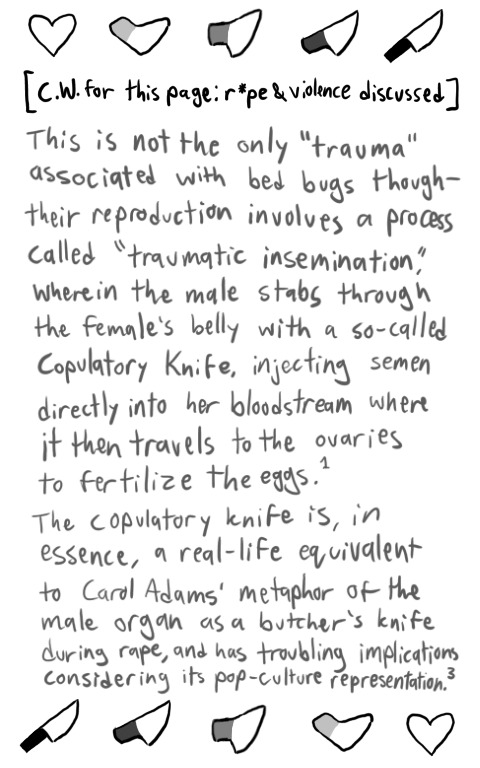 [C.W. for this page: r*pe & violence discussed]
This is not the only "trauma"
associated with bed bugs though—
their reproduction involves a process
called "traumatic insemination,"
wherein the male stabs through
the female's belly with a so-called
Copulatory Knife, injecting semen
directly into her bloodstream where
it then travels to the ovaries
to fertilize the eggs.¹
The copulatory knife is, in
essence, a real-life equivalent
to Carol Adams' metaphor of the
male organ as a butcher's knife
during rape, and has troubling implications
considering its pop-culture representation.³